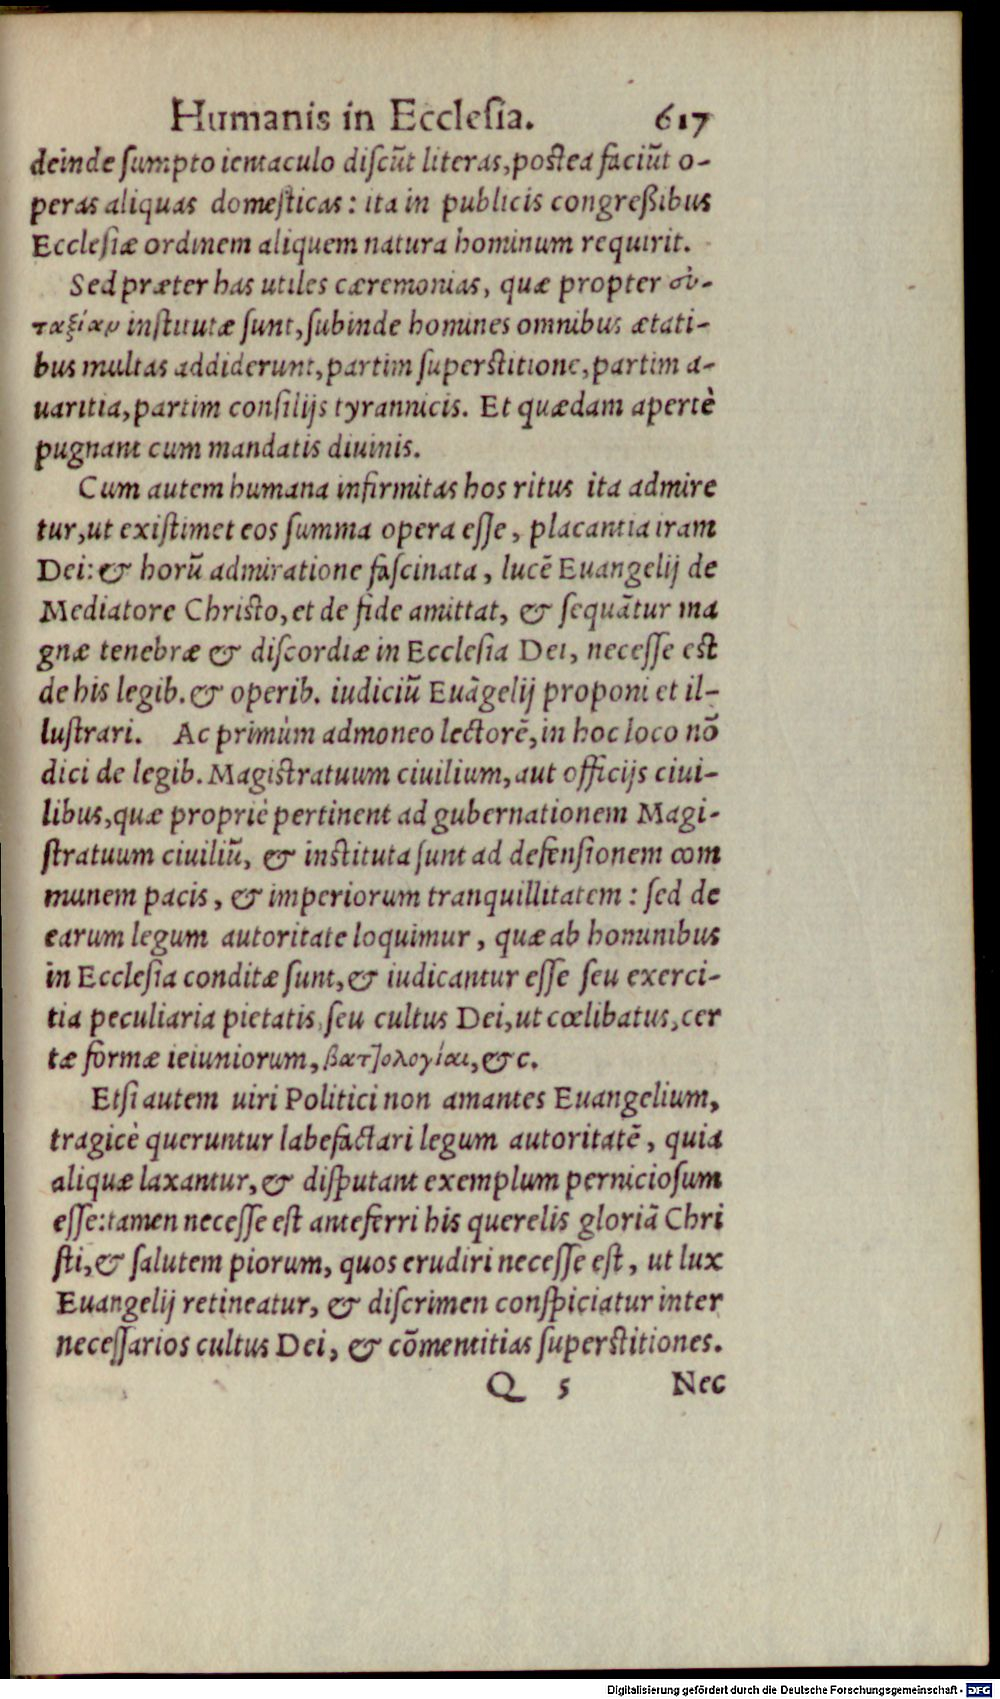 Humanis in Ecclesia. 617
deinde ſumpto ientaculo diſcūt literas, poſtea faciūt o-
peras aliquas domeſticas: ita in publicis congreßibus
Eccleſiæ ordinem aliquem natura hominum requirit.
Sed præter has utiles cæremonias, quæ propter εὐ-
ταξίαν inſtitutæ ſunt, ſubinde homines omnibus ætati-
bus multas addiderunt, partim ſuperſtitione, partim a-
uaritia, partim conſilijs tyrannicis. Et quædam apertè
pugnant cum mandatis diuinis.
Cum autem humana infirmitas hos ritus ita admire
tur, ut exiſtimet eos ſumma opera eſſe, placantia iram
Dei: & horū admiratione faſcinata, lucē Euangelij de
Mediatore Chriſto, et de fide amittat, & ſequātur ma
gnæ tenebræ & diſcordiæ in Eccleſia Dei, neceſſe eſt
de his legib. & operib. iudiciū Euāgelij proponi et il-
luſtrari. Ac primùm admoneo lectorē, in hoc loco nō
dici de legib. Magiſtratuum ciuilium, aut officijs ciui-
libus, quæ propriè pertinent ad gubernationem Magi-
ſtratuum ciuiliū, & inſtituta ſunt ad defenſionem com
munem pacis, & imperiorum tranquillitatem: ſed de
earum legum autoritate loquimur, quæ ab hominibus
in Eccleſia conditæ ſunt, & iudicantur eſſe ſeu exerci-
tia peculiaria pietatis, ſeu cultus Dei, ut cœlibatus, cer
tæ formæ ieiuniorum, βαττολογίαι, &c.
Etſi autem uiri Politici non amantes Euangelium,
tragicè queruntur labefactari legum autoritatē, quia
aliquæ laxantur, & diſputant exemplum pernicioſum
eſſe: tamen neceſſe eſt anteferri his querelis gloriā Chri
ſti, & ſalutem piorum, quos erudiri neceſſe eſt, ut lux
Euangelij retineatur, & diſcrimen conſpiciatur inter
neceſſarios cultus Dei, & cōmentitias ſuperſtitiones.
Q 5 Nec
Digitalisierung gefördert durch die Deutsche Forschungsgemeinschaft - DFG